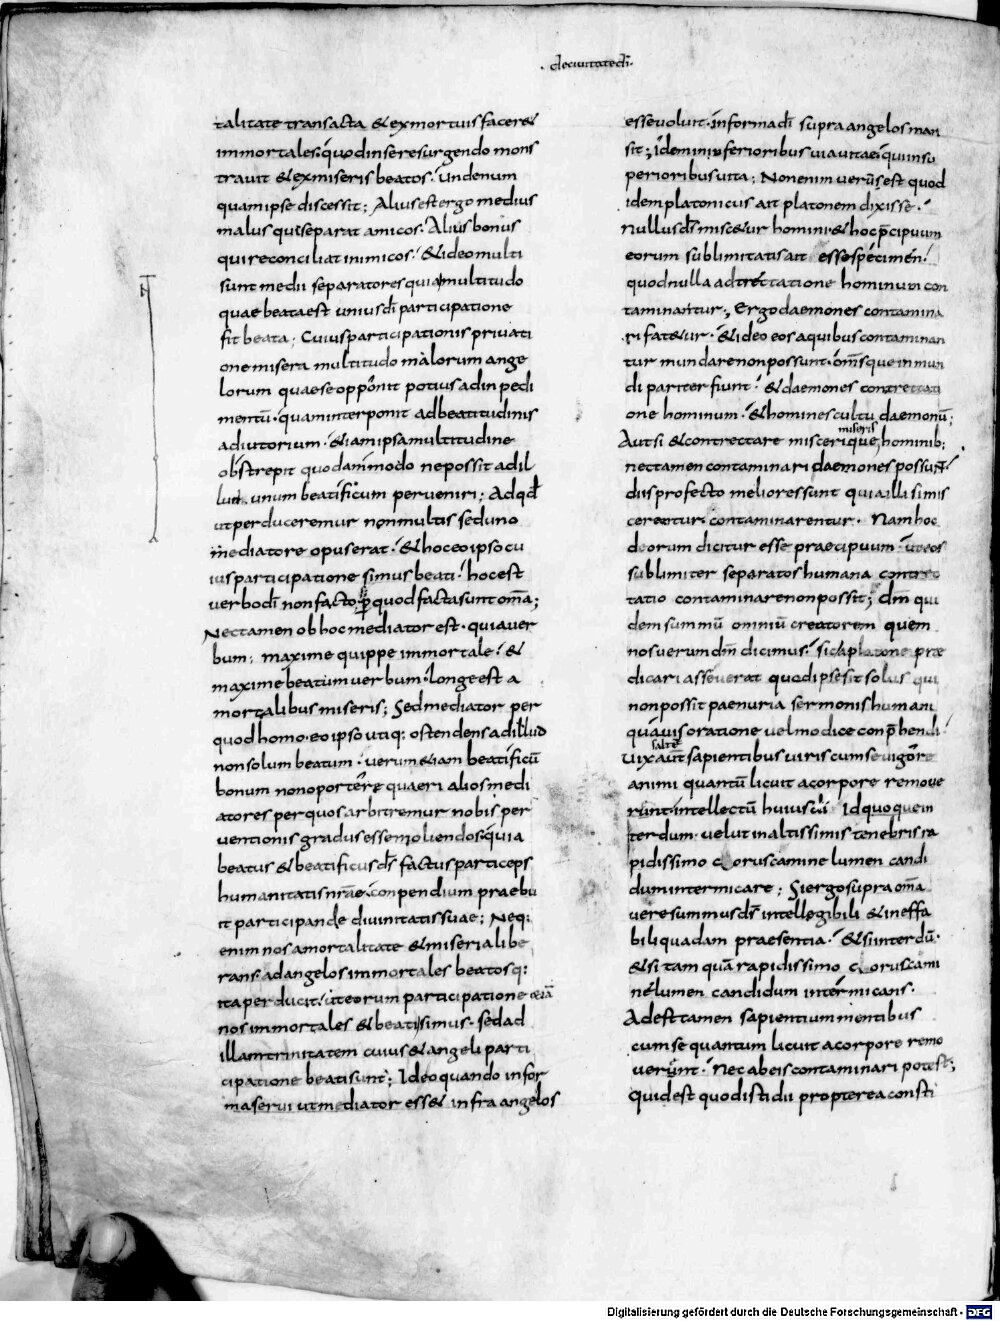 · deciuitatedī·
talitate transacta & exmortuis facer&
immortales· quodinseresurgendo mons
trauit & exmiseris beatos· undenum
quam ipse discessit; Alius est ergo medius
malus quiseparat amicos· Alius bonus
qui reconciliat inimicos· & ideo multi
sunt medii separatores quia multitudo
quae beata est unius dī participatione
fit beata; Cuius participationis priuati
one misera multitudo malorum ange
lorum quae se opponit potius ad inpedi
mentū· quam interponit ad beatitudinis
adiutorium· & iam ipsa multitudine
obstrepit quodammodo ne possit ad il
lud unum beatificum perueniri; Ad qđ
ut perduceremur non multis sed uno
mediatore opus erat· & hoc eo ipso cu
ius participatione simus beati· hoc est
uerbo dī non facto p̄ quod facta sunt om̄a;
Nec tamen ob hoc mediator est· quia uer
bum; maxime quippe immortale· &
maxime beatum uerbum· longe est a
mortalibus miseris; Sed mediator per
quod homo· eo ipso utiq; ostendens ad illud
non solum beatum· uerum &iam beatificū
bonum non oportere quaeri alios medi
atores per quos arbitremur nobis per
uentionis gradus esse moliendos· quia
beatus & beatificus dš factus particeps
humanitatis nrae· conpendium praebu
it participandae diuinitatis suae; Neq;
enim nos a mortalitate & miseria libe
rans ad angelos immortales beatosq;
ita perducit· ut eorum participatione &iā
nos immortales & beati simus· sed ad
illam trinitatem cuius & angeli parti
cipatione beati sunt; Ideo quando in for
ma serui ut mediator ess& infra angelos
esse uoluit· in forma dī supra angelos man
sit; Idem in inferioribus uia uitae· qui in su
perioribus uita; Non enim uerū est quod
idem platonicus ait platonem dixisse·
Nullus dš misc&ur homini· & hoc p̄cipuum
eorum sublimitatis ait esse specimen·
quod nulla adtrectatione hominum con
taminantur; Ergo daemones contamina
ri fat&ur· & ideo eos a quibus contaminan
tur mundare non possunt· om̄sque inmun
di pariter fiunt· & daemones contrectati
one hominum· & homines cultu daemonū;
Aut si & contrectare misceri que miseris hominib;
nec tamen contaminari daemones possunt·
diis profecto meliores sunt quia illi si mis
cerentur contaminarentur· Nam hoc
deorum dicitur esse praecipuum· ut eos
sublimiter separatos humana contrec
tatio contaminare non possit; dm̄ qui
dem summū omniū creatorem quem
nos uerum dm̄ dicimus· sic a platone prae
dicari asseuerat quod ipse sit solus qui
non possit paenuria sermonis humani
quāuis oratione uel modice conp̄hendi·
Vix autē sapientibus uiris cum se uigore
salte
animi quantū licuit a corpore remoue
runt· intellectū huius dī Id quoque in
terdum· uelut in altissimis tenebris ra
pidissimo coruscamine lumen candi
dum intermicare; Si ergo supra om̄a
uere summus dš intellegibili & ineffa
bili quadam praesentia· & si interdū·
& si tam quā rapidissimo coruscami
ne lumen candidum intermicans·
Adest tamen sapientium mentibus
cum se quantum licuit a corpore remo
uerunt· nec ab eis contaminari potest;
quid est quod isti dii propterea consti
Digitalisierung gefördert durch die Deutsche Forschungsgemeinschaft - DFG